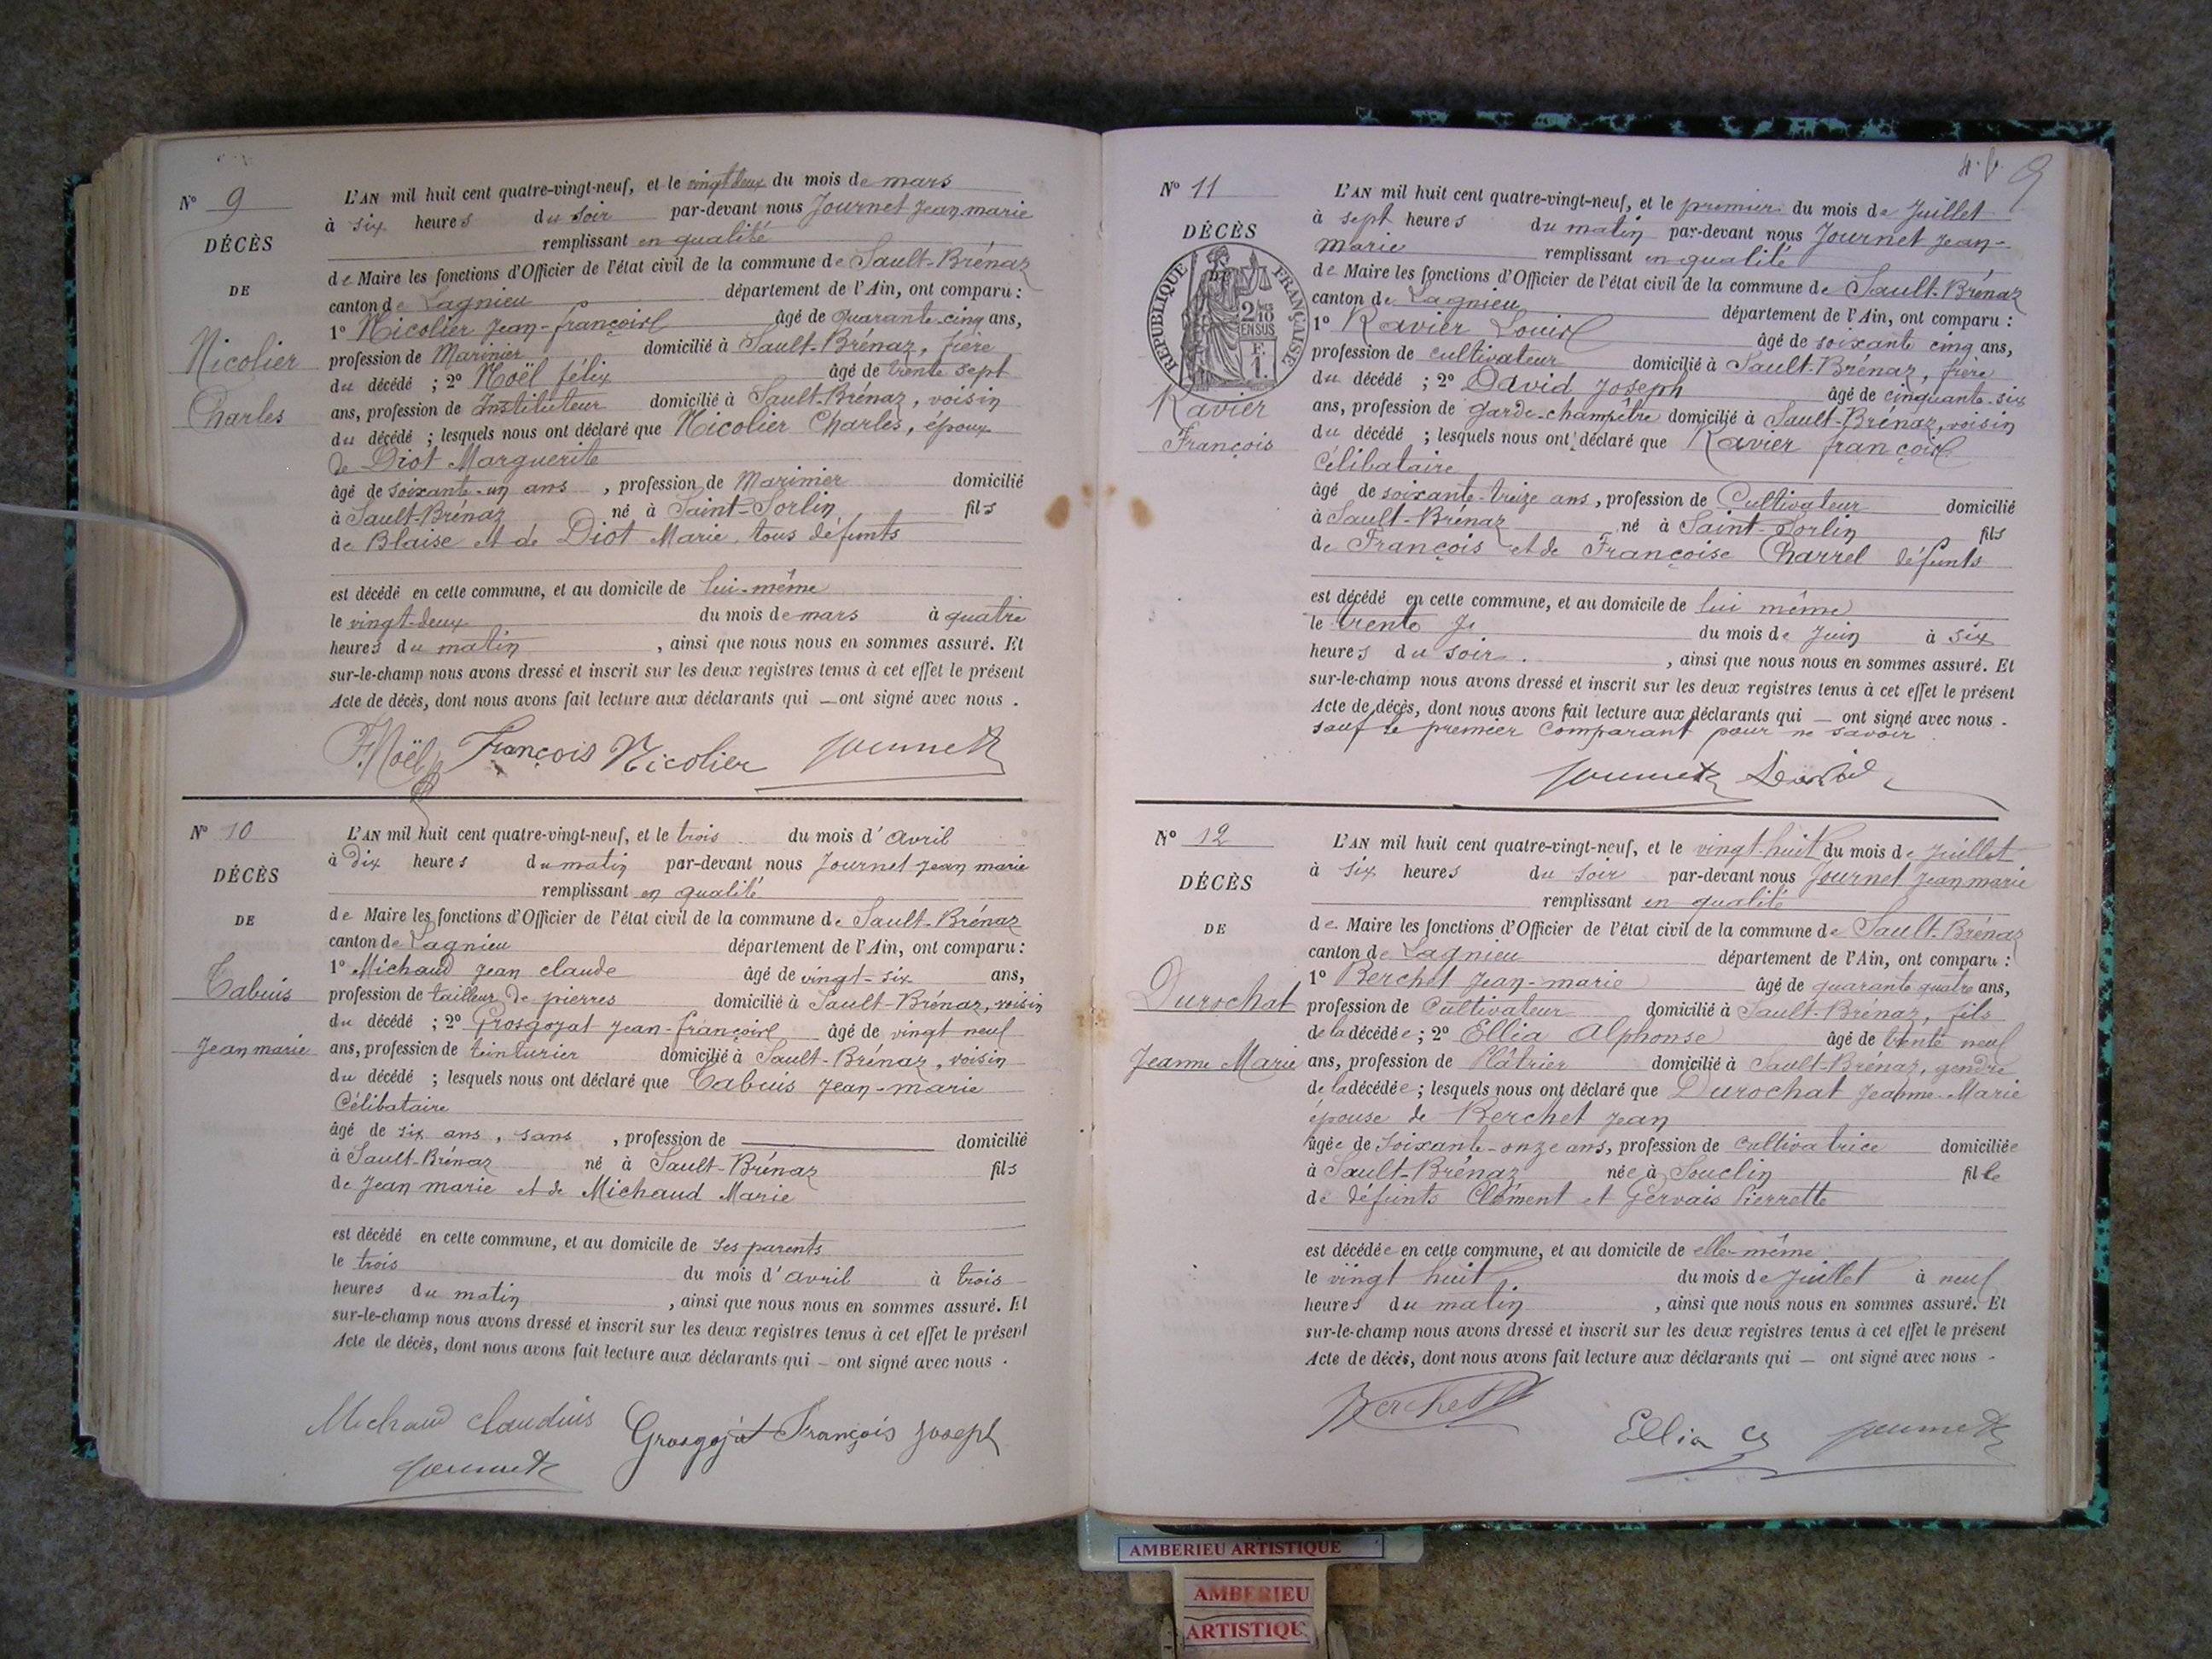 N° 9
DÉCÈS
DE
Nicolier
Charles
L'AN mil huit cent quatre-vingt-neuf, et le vingt deux du mois de mars
à six heures du soir par-devant nous Journet Jean marie
remplissant en qualité
de Maire les fonctions d'Officier de l'état civil de la commune de Sault-Brénaz
canton de Lagnieu département de l'Ain, ont comparu :
1° Nicolier Jean-françois âgé de Quarante-cinq ans,
profession de Marinier domicilié à Sault-Brénaz, frère
du décédé ; 2° Noël félix âgé de trente sept
ans, profession de Instituteur domicilié à Sault-Brénaz, voisin
du décédé ; lesquels nous ont déclaré que Nicolier Charles, époux
de Diot Marguerite
âgé de soixante-un ans , profession de Marinier domicilié
à Sault-Brénaz né à Saint-Sorlin fils
de Blaise et de Diot Marie, tous défunts
est décédé en cette commune, et au domicile de lui-même
le vingt-deux du mois de mars à quatre
heures du matin , ainsi que nous nous en sommes assuré. Et
sur-le-champ nous avons dressé et inscrit sur les deux registres tenus à cet effet le présent
Acte de décès, dont nous avons fait lecture aux déclarants qui — ont signé avec nous .
F. Noël François Nicolier Journet
N° 10
DÉCÈS
DE
Cabuis
Jean marie
L'AN mil huit cent quatre-vingt-neuf, et le trois du mois d'avril
à dix heures du matin par-devant nous Journet Jean marie
remplissant en qualité
de Maire les fonctions d'Officier de l'état civil de la commune de Sault-Brénaz
canton de Lagnieu département de l'Ain, ont comparu :
1° Michaud Jean claude âgé de vingt-six ans,
profession de tailleur de pierres domicilié à Sault-Brénaz, voisin
du décédé ; 2° Grosgojat Jean-françois âgé de vingt neuf
ans, profession de teinturier domicilié à Sault-Brénaz, voisin
du décédé ; lesquels nous ont déclaré que Cabuis Jean-marie
Célibataire
âgé de six ans, sans , profession de domicilié
à Sault-Brénaz né à Sault-Brénaz fils
de Jean marie et de Michaud Marie
est décédé en cette commune, et au domicile de ses parents
le trois du mois d'avril à trois
heures du matin , ainsi que nous nous en sommes assuré. Et
sur-le-champ nous avons dressé et inscrit sur les deux registres tenus à cet effet le présent
Acte de décès, dont nous avons fait lecture aux déclarants qui — ont signé avec nous .
Michaud Claudius Grosgojat François Joseph
Journet
9
N° 11
DÉCÈS
RÉPUBLIQUE FRANÇAISE
2/10 EN SUS
F. 1.
Ravier
François
L'AN mil huit cent quatre-vingt-neuf, et le premier du mois de Juillet
à sept heures du matin par-devant nous Journet Jean-
marie remplissant en qualité
de Maire les fonctions d'Officier de l'état civil de la commune de Sault-Brénaz
canton de Lagnieu département de l'Ain, ont comparu :
1° Ravier Louis âgé de soixante cinq ans,
profession de cultivateur domicilié à Sault-Brénaz, frère
du décédé ; 2° David Joseph âgé de cinquante-six
ans, profession de garde-champêtre domicilié à Sault-Brénaz, voisin
du décédé ; lesquels nous ont déclaré que Ravier françois
Célibataire
âgé de soixante-treize ans, profession de Cultivateur domicilié
à Sault-Brénaz né à Saint-Sorlin fils
de François et de Françoise Charrel défunts
est décédé en cette commune, et au domicile de lui même
le trente du mois de Juin à six
heures du soir , ainsi que nous nous en sommes assuré. Et
sur-le-champ nous avons dressé et inscrit sur les deux registres tenus à cet effet le présent
Acte de décès, dont nous avons fait lecture aux déclarants qui — ont signé avec nous -
sauf le premier Comparant pour ne savoir
Journet David
N° 12
DÉCÈS
DE
Durochat
Jeanne Marie
L'AN mil huit cent quatre-vingt-neuf, et le vingt-huit du mois de Juillet
à six heures du soir par-devant nous Journet Jean marie
remplissant en qualité
de Maire les fonctions d'Officier de l'état civil de la commune de Sault-Brénaz
canton de Lagnieu département de l'Ain, ont comparu :
1° Berchet Jean-marie âgé de quarante quatre ans,
profession de Cultivateur domicilié à Sault-Brénaz, fils
de la décédée ; 2° Ellia Alphonse âgé de trente neuf
ans, profession de Plâtrier domicilié à Sault-Brénaz, gendre
de la décédée ; lesquels nous ont déclaré que Durochat Jeanne-Marie
épouse de Berchet Jean
âgée de soixante-onze ans, profession de cultivatrice domiciliée
à Sault-Brénaz née à Souclin fille
de défunts Clément et Gervais Pierrette
est décédée en cette commune, et au domicile de elle-même
le vingt huit du mois de Juillet à neuf
heures du matin , ainsi que nous nous en sommes assuré. Et
sur-le-champ nous avons dressé et inscrit sur les deux registres tenus à cet effet le présent
Acte de décès, dont nous avons fait lecture aux déclarants qui — ont signé avec nous -
Berchet
Ellia Journet
AMBERIEU ARTISTIQUE
AMBERIEU
ARTISTIQU